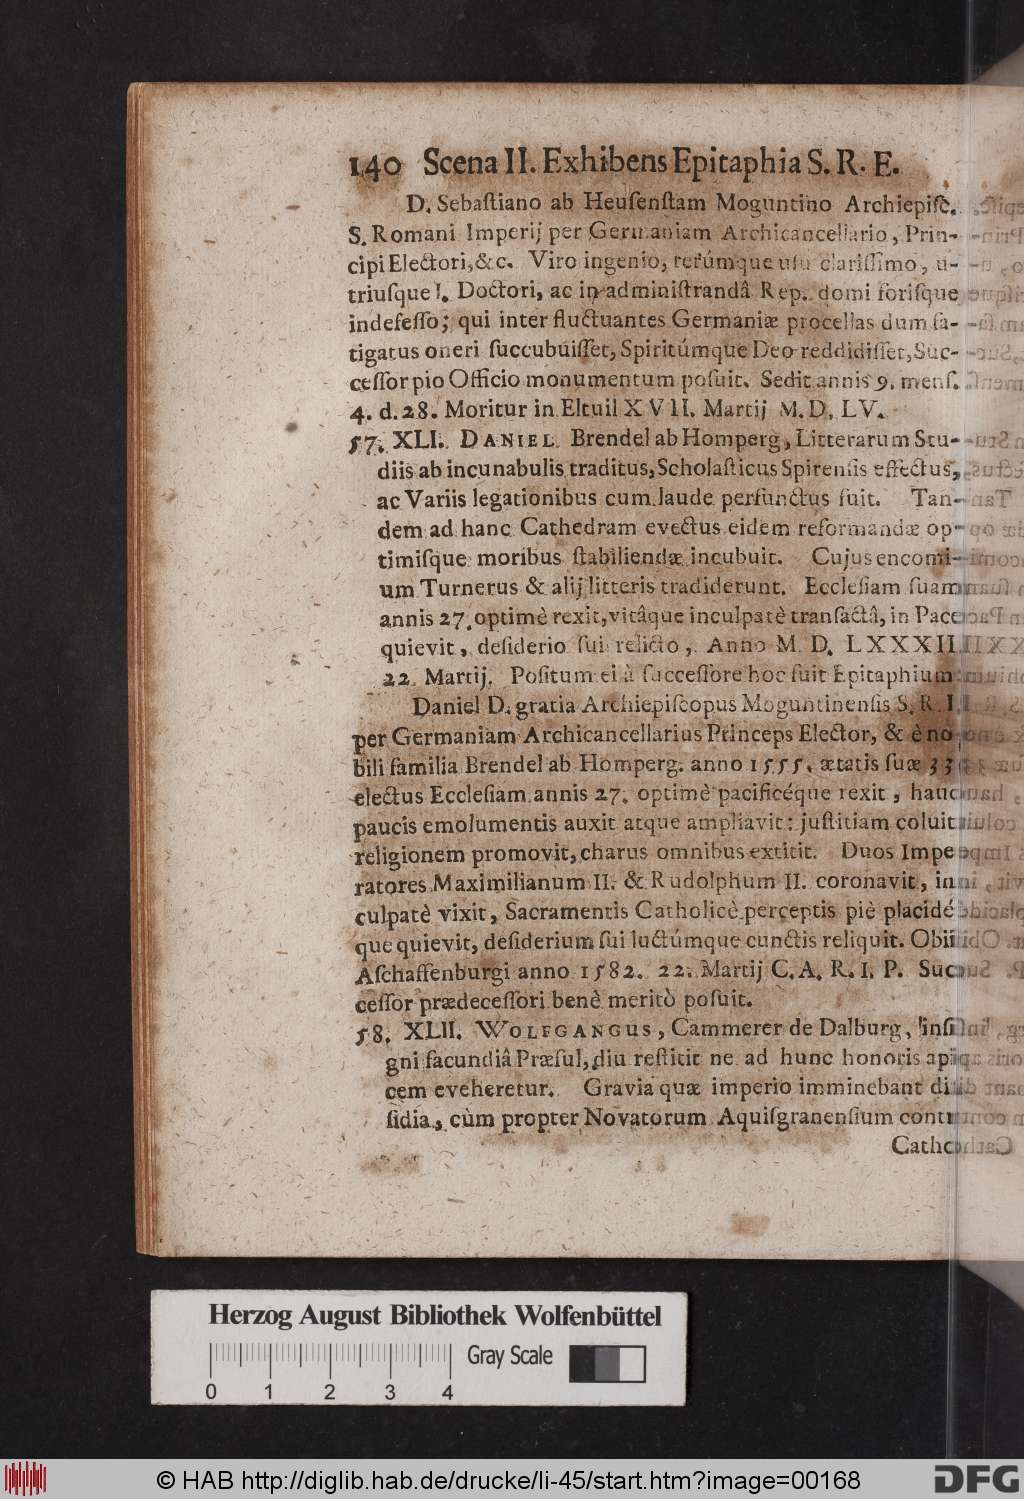 140 Scena II. Exhibens Epitaphia S. R. E.
D. Sebaſtiano ab Heuſenſtam Moguntino Archiepiſc.
S. Romani Imperij per Germaniam Archicancellario, Prin-
cipi Electori, &c. Viro ingenio, rerúmque uſu clariſſimo, u-
triuſque I. Doctori, ac in adminiſtrandâ Rep. domi foriſque
indefeſſo; qui inter fluctuantes Germaniæ procellas dum fa-
tigatus oneri ſuccubuiſſet, Spiritúmque Deo reddidiſſet, Suc-
ceſſor pio Officio monumentum poſuit. Sedit annis 9. menſ.
4. d. 28. Moritur in Eltuil XVII. Martij M. D. LV.
57. XLI. DANIEL Brendel ab Homperg, Litterarum Stu-
diis ab incunabulis traditus, Scholaſticus Spirenſis effectus,
ac Variis legationibus cum laude perfunctus fuit. Tan-
dem ad hanc Cathedram evectus eidem reformandæ op-
timiſque moribus ſtabiliendæ incubuit. Cujus encomi-
um Turnerus & alij litteris tradiderunt. Eccleſiam ſuam
annis 27. optimè rexit, vitâque inculpatè tranſactâ, in Pace
quievit, deſiderio ſui relicto, Anno M. D. LXXXII
22. Martij. Poſitum ei à ſucceſſore hoc fuit Epitaphium
Daniel D. gratia Archiepiſcopus Moguntinenſis S. R. I.
per Germaniam Archicancellarius Princeps Elector, & è no
bili familia Brendel ab Homperg. anno 1555. ætatis ſuæ 33
electus Eccleſiam annis 27. optimè pacificéque rexit, haud
paucis emolumentis auxit atque ampliavit: juſtitiam coluit
religionem promovit, charus omnibus extitit. Duos Impe
ratores Maximilianum II. & Rudolphum II. coronavit, in
culpatè vixit, Sacramentis Catholicè perceptis piè placidé
que quievit, deſiderium ſui luctúmque cunctis reliquit. Obii
Aſchaffenburgi anno 1582. 22. Martij C. A. R. I. P. Suc
ceſſor prædeceſſori benè meritò poſuit.
58. XLII. WOLFGANGUS, Cammerer de Dalburg, inſi
gni facundiâ Præſul, diu reſtitit ne ad hunc honoris api
cem eveheretur. Gravia quæ imperio imminebant di
ſidia, cùm propter Novatorum Aquiſgranenſium cont
Cathe
Herzog August Bibliothek Wolfenbüttel
Gray Scale
0 1 2 3 4
© HAB http://diglib.hab.de/drucke/li-45/start.htm?image=00168
DFG